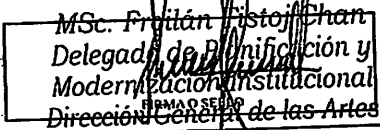 MSc. Froilán Fistoj Chan
Delegado de Planificación y
Modernización Institucional
FIRMA O SELLO
Dirección General de las Artes